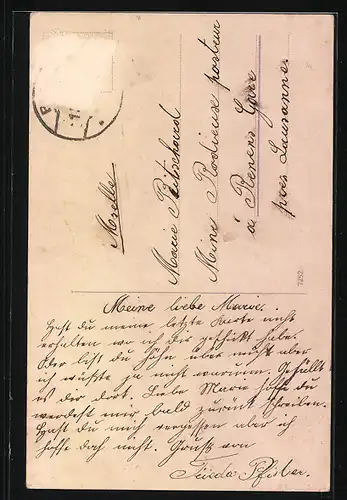 Mselle
Marie Bitschard
Mme Rodieuse posteur
à Renens Gare
près Lausanne.
7252
Meine liebe Marie.
Hast du meine letzte Karte nicht
erhalten wo ich dir geschikt habe.
Oder bist du höhn über mich aber
ich wüsste ja nicht warum. Gefällt
es der dort. Liebe Marie hoffe du
werdest mir bald zurück schreiben.
Hast du mich vergessen aber ich
hoffe doch nicht. Gruss von
Frida Pfister.